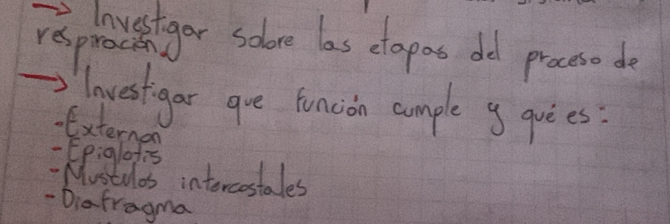 → Investigar sobre las etapas del proceso de
respiración.
→ Investigar que función cumple y qué es:
- Externon
- Epiglotis
- Mustulos intercostales
- Diafragma